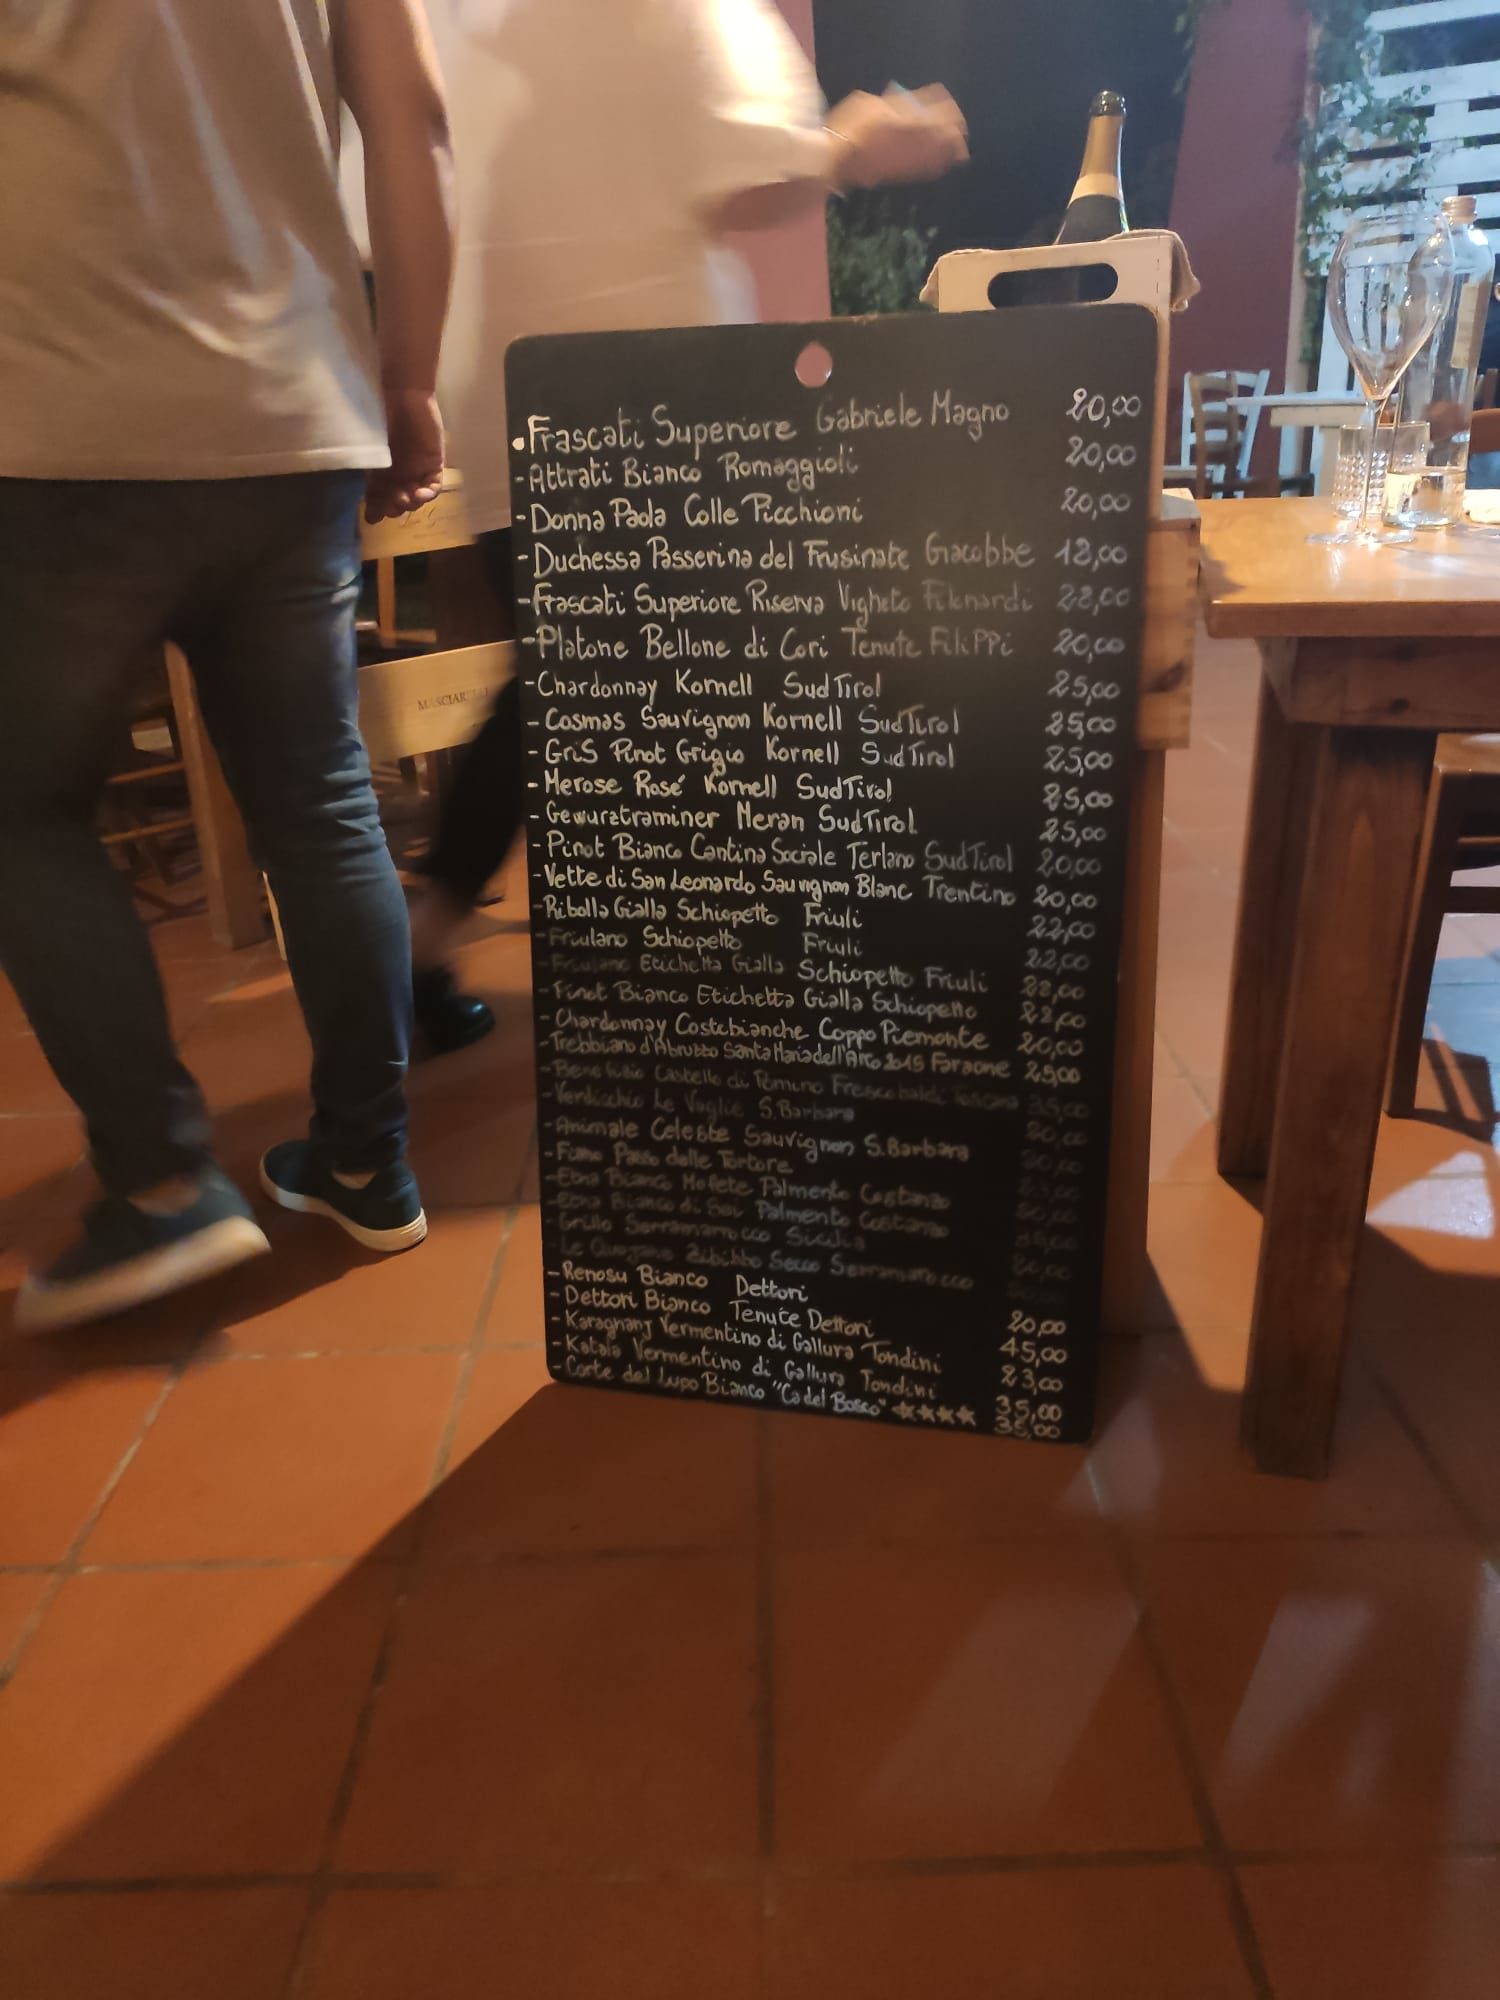 •Frascati Superiore Gabriele Magno 20,00
-Attrati Bianco Romaggioli 20,00
-Donna Paola Colle Picchioni 20,00
-Duchessa Passerina del Frusinate Giacobbe 18,00
-Frascati Superiore Riserva Vigneto Filonardi 28,00
-Platone Bellone di Cori Tenute Filippi 20,00
-Chardonnay Kornell Sud Tirol 25,00
-Cosmas Sauvignon Kornell Sud Tirol 25,00
-Gris Pinot Grigio Kornell Sud Tirol 25,00
-Merose Rosé Kornell Sud Tirol 25,00
-Gewurztraminer Meran Sud Tirol 25,00
-Pinot Bianco Cantina Sociale Terlano Sud Tirol 20,00
-Vette di San Leonardo Sauvignon Blanc Trentino 20,00
-Ribolla Gialla Schiopetto Friuli 22,00
-Friulano Schiopetto Friuli 22,00
-Friulano Etichetta Gialla Schiopetto Friuli 28,00
-Pinot Bianco Etichetta Gialla Schiopetto
-Chardonnay Costebianche Coppo Piemonte 20,00
-Trebbiano d'Abruzzo Santa Maria dell'Arco 2015 Faraone 25,00
-Castello di Pomino Frescobaldi Toscana 35,00
-Verdicchio Le Vaglie S.Barbara 20,00
-Animale Celeste Sauvignon S.Barbara
-Fiano Passo delle Tortore
-Etna Bianco Mofete Palmento Costanzo
-Etna Bianco di Sei Palmento Costanzo
-Grillo Serramarrocco Sicilia 20,00
-Zibibbo Secco Serramarrocco
-Renosu Bianco Dettori 20,00
-Dettori Bianco Tenute Dettori 45,00
-Karagnanj Vermentino di Gallura Tondini 23,00
-Katala Vermentino di Gallura Tondini 35,00
-Corte del Lupo Bianco "Ca del Bosco" ★★★★ 35,00